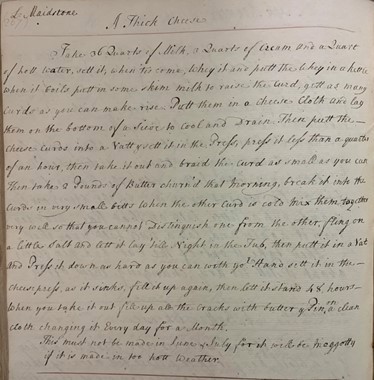 Ly Maidstone
A Thick Cheese
Take 36 Quarts of Milk, 2 Quarts of Cream and a Quart
of hott water, sett it, when tis come, Whey it and putt the Whey in a kettle
when it boils putt in some skime milk to raise the Curd, gett as many
Curds as you can make rise. Putt them in a cheese Cloth and lay
them on the bottom of a Sieve to Cool and Drain. Then putt the
cheese Curds into a Vatt & sett it in the Press, press it less than a quatter
of an hour, then take it out and braid the Curd as small as you can
Then take 2 Pounds of Butter churn'd that Morning, break it into the
Curds in very small betts when the other Curd is cold mix them together
very well so that you cannot Distinguish one from the other, fling on
a little Salt and lett it lay 'till Night in the Tub, then putt it in a Vat
and Press it down as hard as you can with yor Hand sett it in the
cheesepress, as it sinks, fill it up again, then lett it stand 48 hours
When you take it out fill up all the Cracks with butter & Pin on a clean
Cloth changing it Every day for a Month.
This must not be made in June & July for it will be Maggotty
if it is made in too hott Weather.